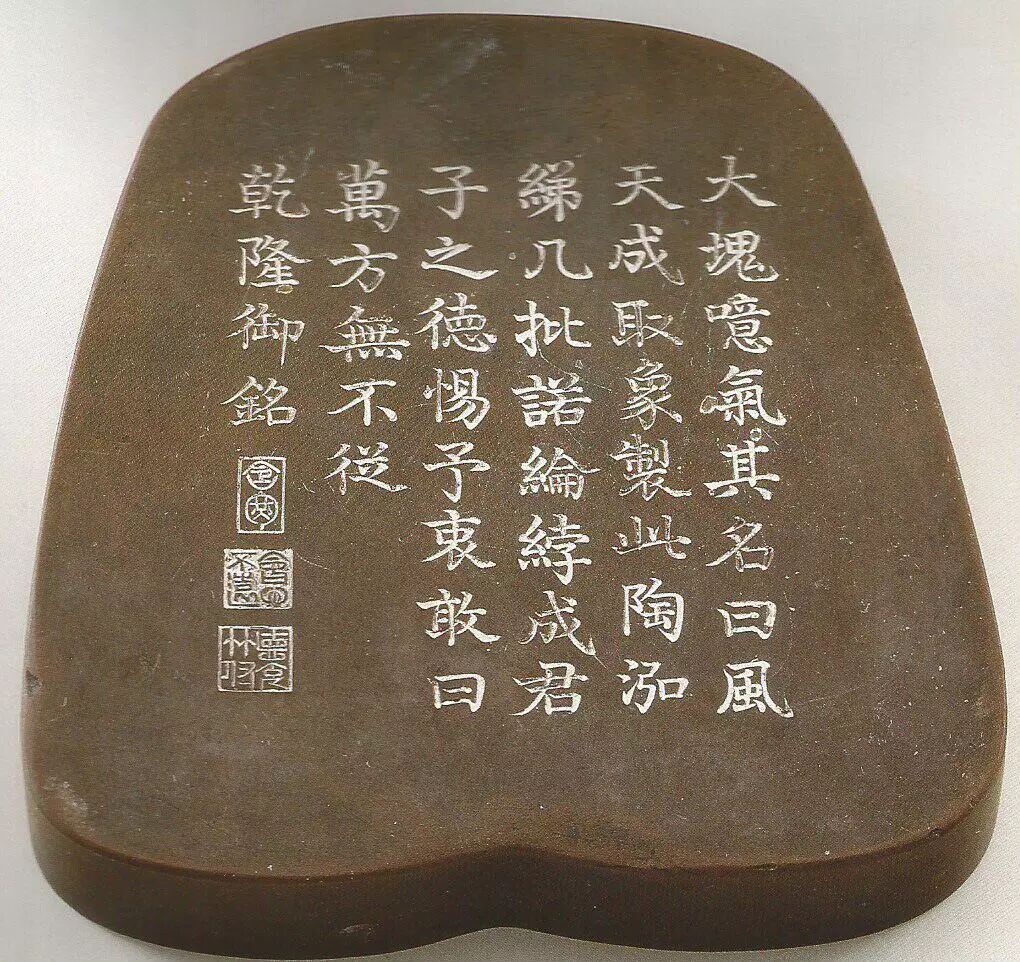 大塊噫氣其名曰風
天成取象製此陶泓
綈几批諾綸綍成君
子之德惕予衷敢曰
萬方無不从
乾隆御銘